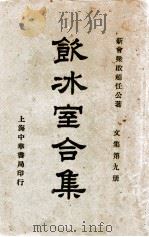 新會梁啟超任公著
飲冰室合集
文集第九册
上海中華書局印行
www.tutu001.com